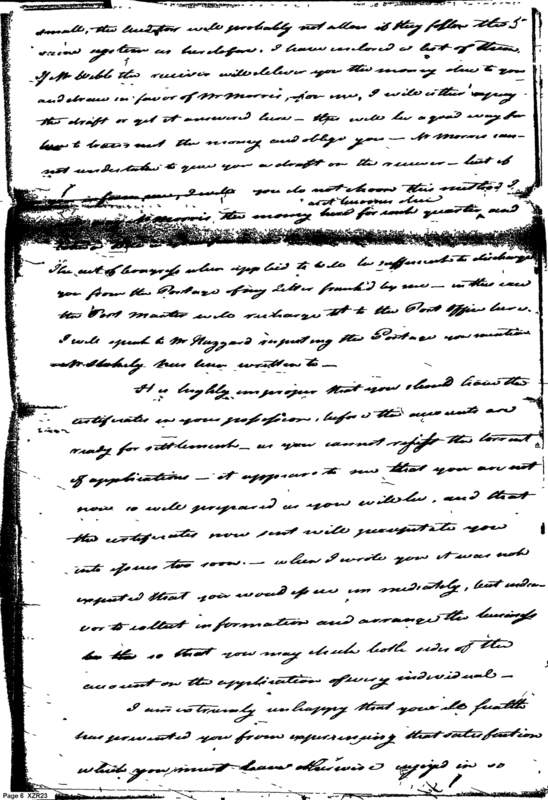 small, the Creditors will probably not allow it they follow the
same system as heretofore. I have enclosed a list of them.
If Mr Webb the receiver will deliver you the money due to you
and draw in favor of Mr Morris, for me, I will either
the draft or get it answered here — this will be a good way for
to transmit the money and oblige you — Mr Morris can-
not undertake to give you a draft on the receiver — but if
you do not choose this method I
Mr Morris, the money for each quarter, and
as it becomes due
The act of Congress when applied to will be sufficient to discharge
you from the Postage of any Letter frank'd by me — in this case
the Post Master will recharge it to the Post Office here.
I will speak to Mr Hazzard respecting the Postage you mention
Mr Stokely has been written to —
It is highly improper that you should have the
certificates in your possession, before the accounts are
ready for settlement — as you cannot resist the torrent
of applications — it appears to me that you are not
now so well prepared as you will be, and that
the certificates now sent will precipitate you
into issues too soon. — when I wrote you it was not
expected that you would issue immediately, but endea-
vor to collect information and arrange the business
so that you may check both sides of the
account on the application of every individual —
I am extremely unhappy that your ill health
has prevented you from experiencing that satisfaction
which you must have otherwise enjoyed in so
Page 6 XZR23